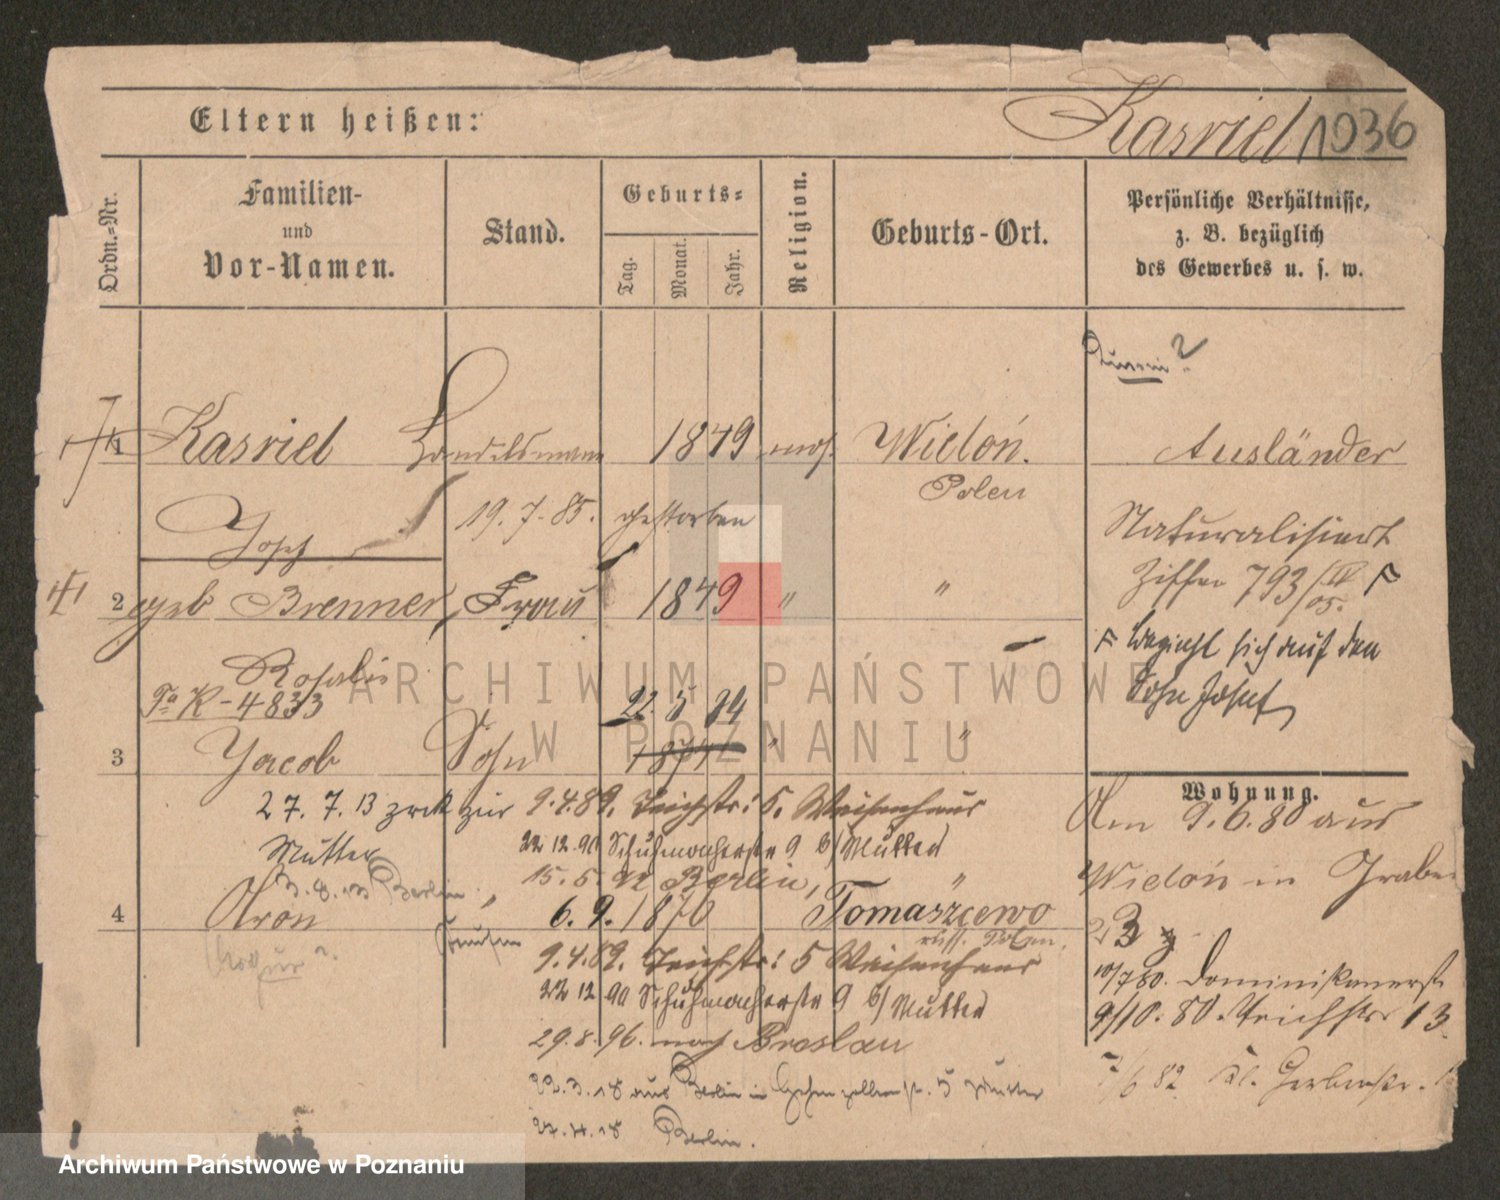 Eltern heißen:
Kasriel 1036
Ordn.-Nr.
Familien-
und
Vor-Namen.
Stand.
Geburts-
Tag.
Monat.
Jahr.
Religion.
Geburts-Ort.
Persönliche Verhältnisse,
z. B. bezüglich
des Gewerbes u. s. w.
1 Kasriel Handelsmann 1849 mos. Wieloń. Ausländer
Polen
Josef 19. 7. 85. gestorben
Naturalisiert
Ziffer 793/IV 05.
2 geb Brenner, Frau 1849 " "
Rosalie
bezieht sich auf den
Sohn Josef
K-4833
22. 5 74
3 Jacob Sohn 1871 " "
Wohnung.
27. 7. 13 zrck zur 9.4.89. Teichstr: 5. Waisenhaus
Am 9.6.80 aus
Mutter 22 12.90 Schuhmacherstr 9 b/Mutter
3.8.13 Berlin 15.5.92 Berlin,
Wieloń in Graben
4 Aron " 6. 9. 1870 " Tomaszewo
russ. Polen.
23
9.4.89. Teichstr: 5 Waisenhaus
10/7 80. Dominikanerstr
22 12 90 Schuhmacherstr 9 b/Mutter
9/10. 80. Teichstr 13
29.8.96. nach Breslau
/6 82 Kl. Gerberstr.
22.3.18 aus Berlin in Hohenzollernstr. 5 z Mutter
27.4.18 Berlin.
ARCHIWUM PAŃSTWOWE
W POZNANIU
Archiwum Państwowe w Poznaniu